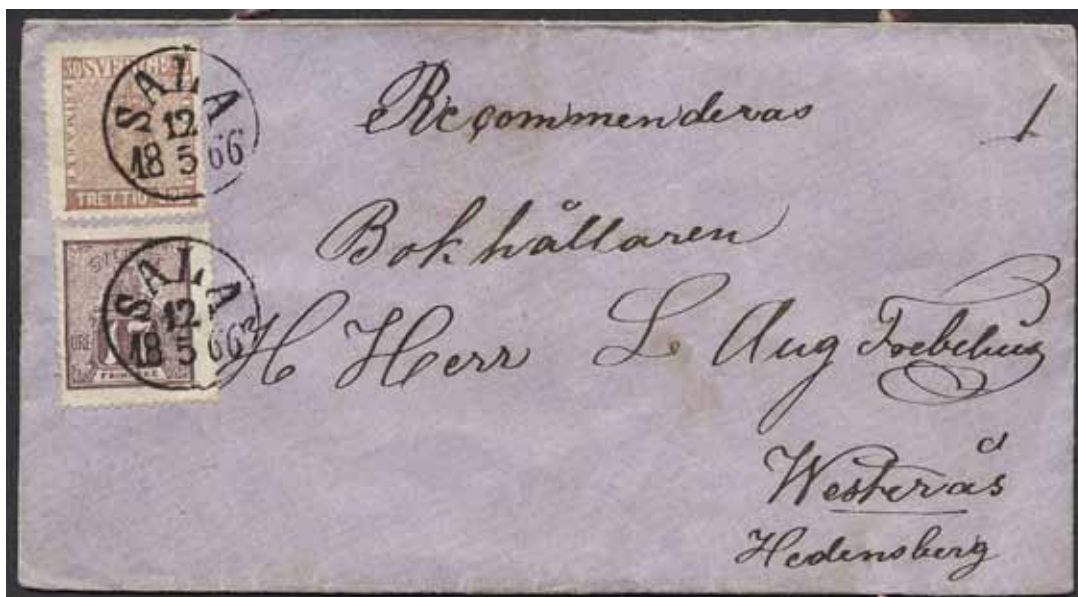 SVERIGE
TRETTIO ÖRE
SALA
12
18 5 66
SALA
12
18 5 66
Recommenderas
1
Bokhållaren
H Herr L. Aug
Westerås
Hedensberg